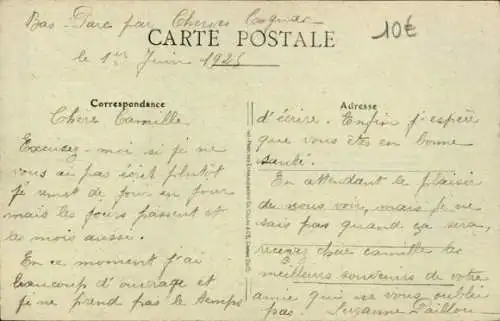 Bas Parc par Cherves Cognac
10€
CARTE POSTALE
le 1er Juin 1925
Correspondance
Chère Camille
Excusez-moi si je ne
vous ai pas écrit plutôt
je remet de jour en jour
mais les jours passent et
les mois aussi.
En ce moment j'ai
beaucoup d'ouvrage et
je ne prend pas le temps
Adresse
d'écrire. Enfin j'espère
que vous êtes en bonne
santé.
En attendant le plaisir
de vous voir, mais je ne
sais pas quand ça sera,
recevez chère camille les
meilleurs souvenirs de votre
amie qui ne vous oublie
pas. Suzanne